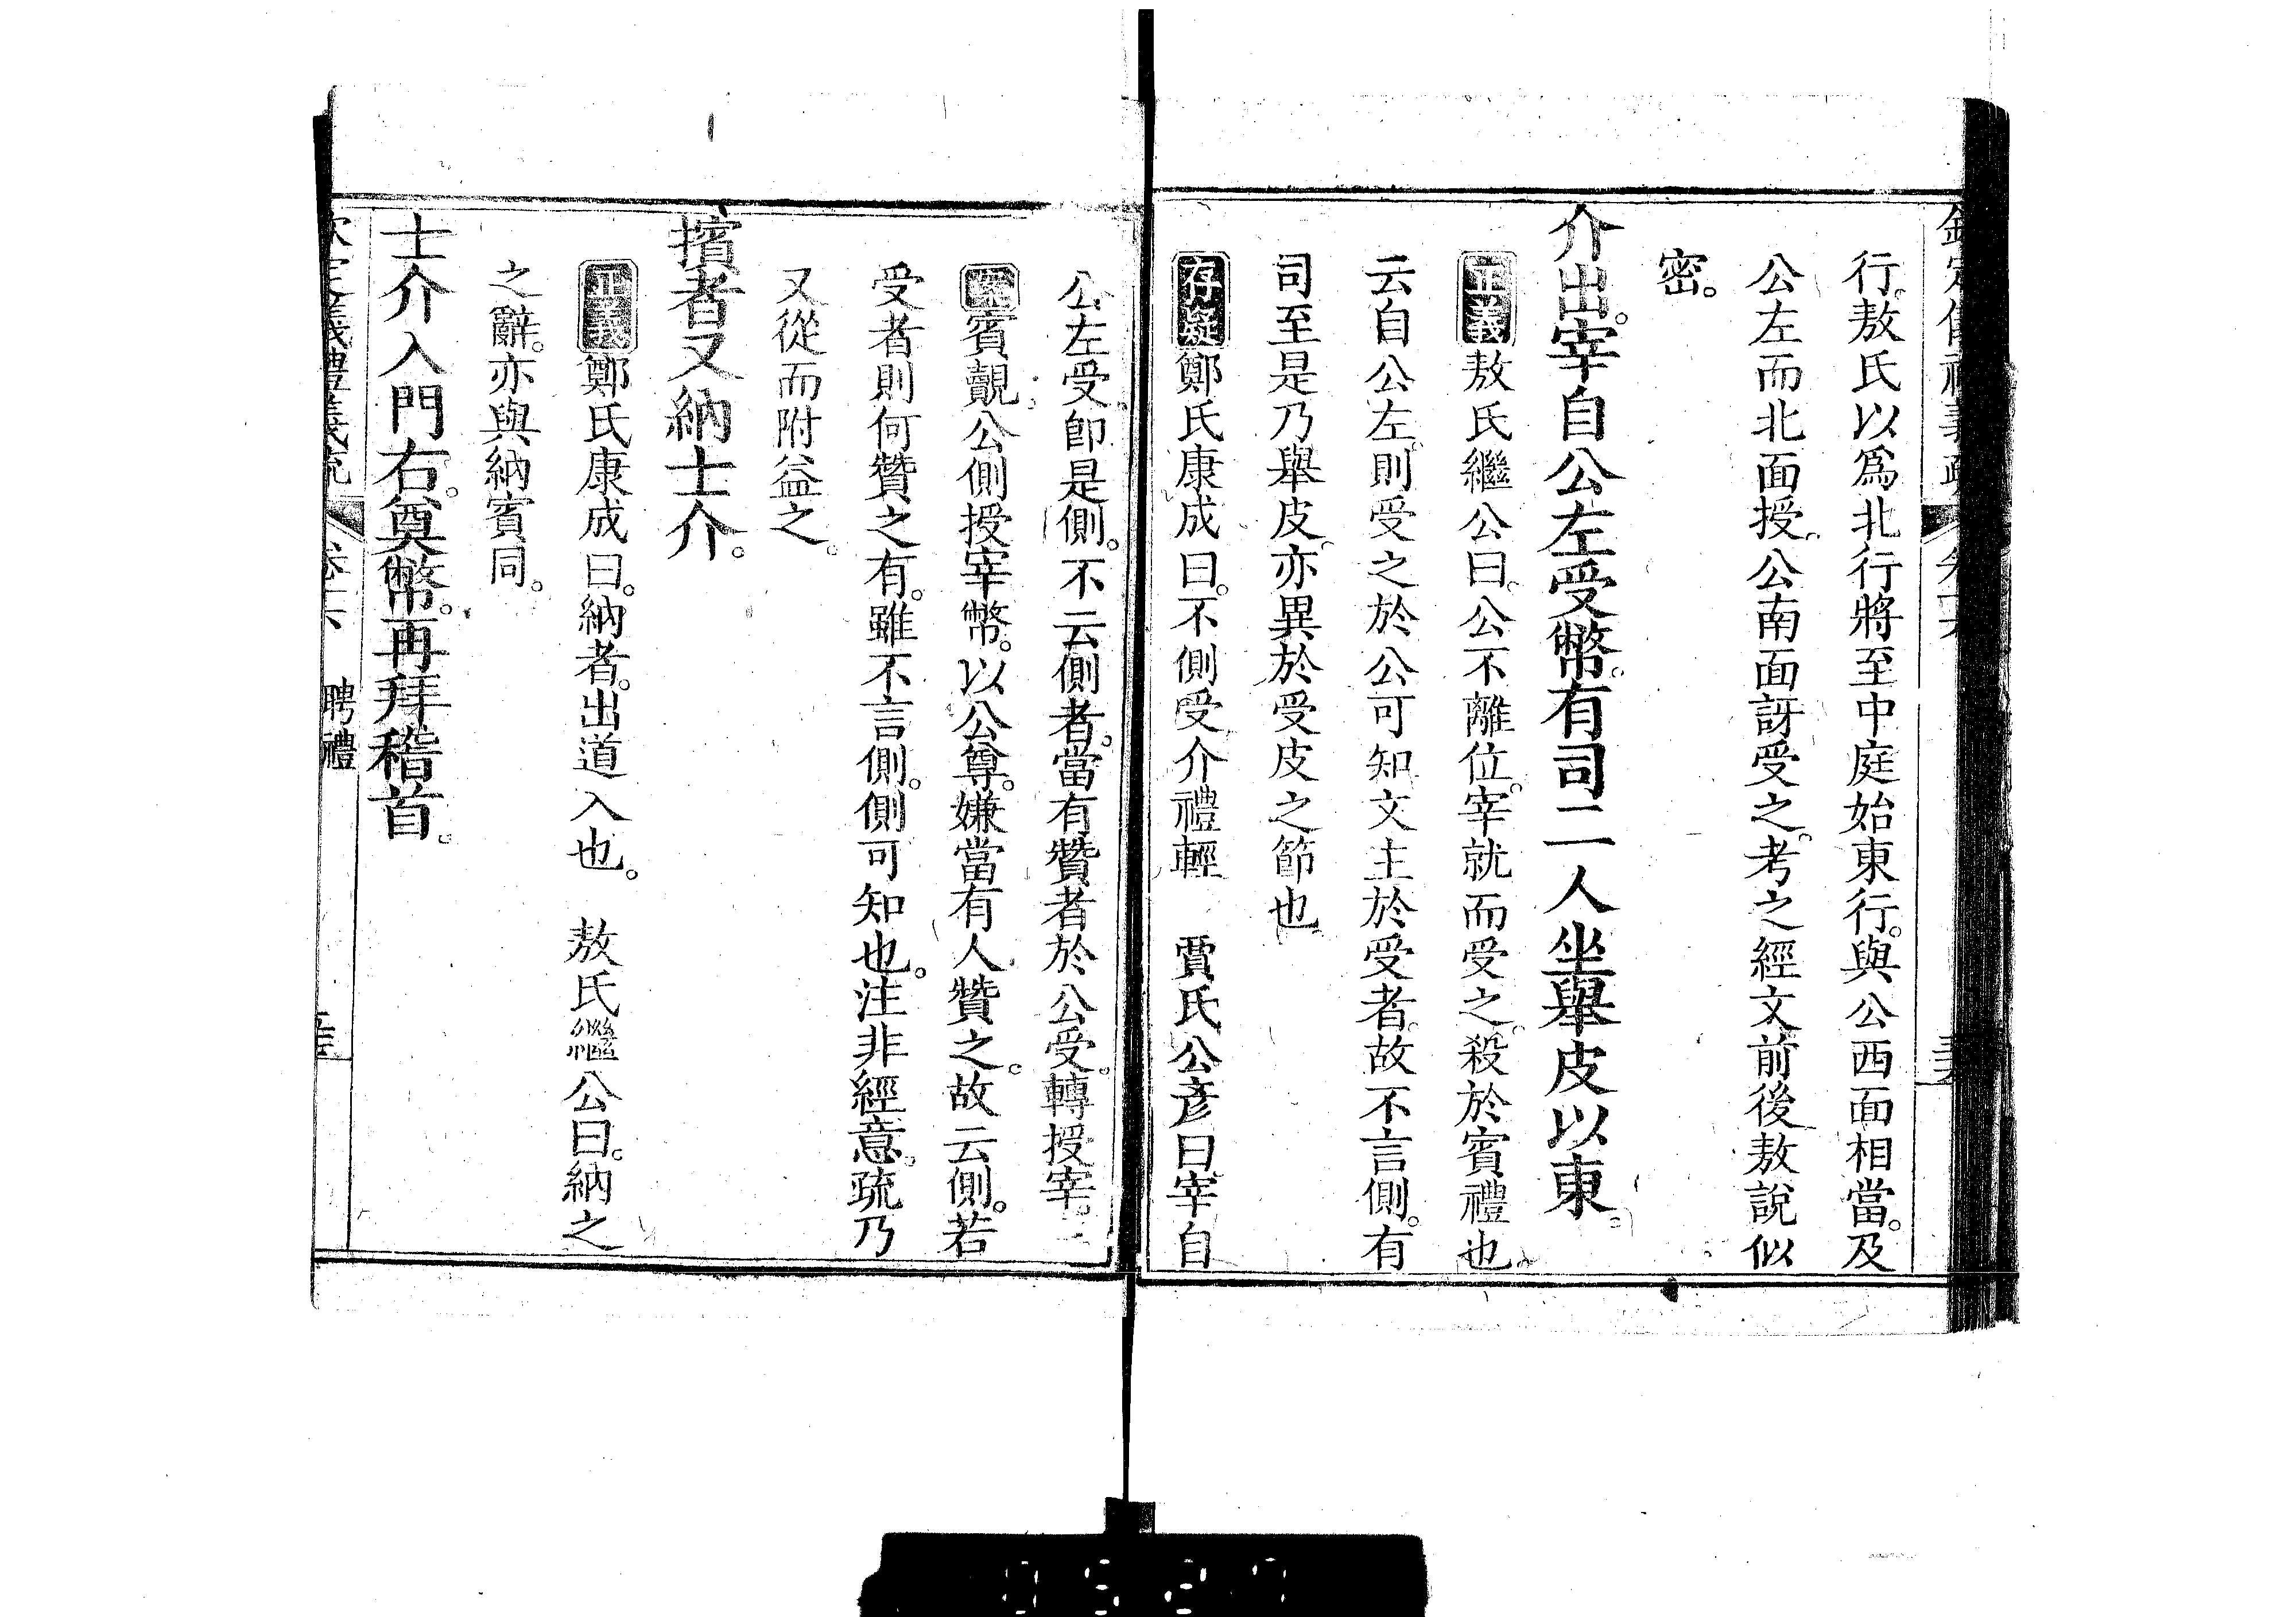 行。敖氏以爲北行將至中庭始東行。與公西面相當。及
公左而北面授。公南面訝受之。考之經文前後敖說似
密。
介出。宰自公左受幣。有司二人坐舉皮以東。
正義敖氏繼公曰。公不離位。宰就而受之。殺於賓禮也
云自公左。則受之於公可知文主於受者。故不言側。有
司至是乃舉皮。亦異於受皮之節也
存疑鄭氏康成曰。不側受介禮輕　賈氏公彥曰。宰自
公左受。卽是側。不云側者。當有贊者於公受。轉授宰。
案賓覿。公側授宰幣。以公尊。嫌當有人贊之。故云側。若
受者則何贊之有。雖不言側。側可知也。注非經意。疏乃
又從而附益之。
擯者又納士介。
正義鄭氏康成曰。納者。出道入也。　敖氏繼公曰。納之
之辭。亦與納賓同。
士介入門右。奠幣。再拜稽首。
聘禮